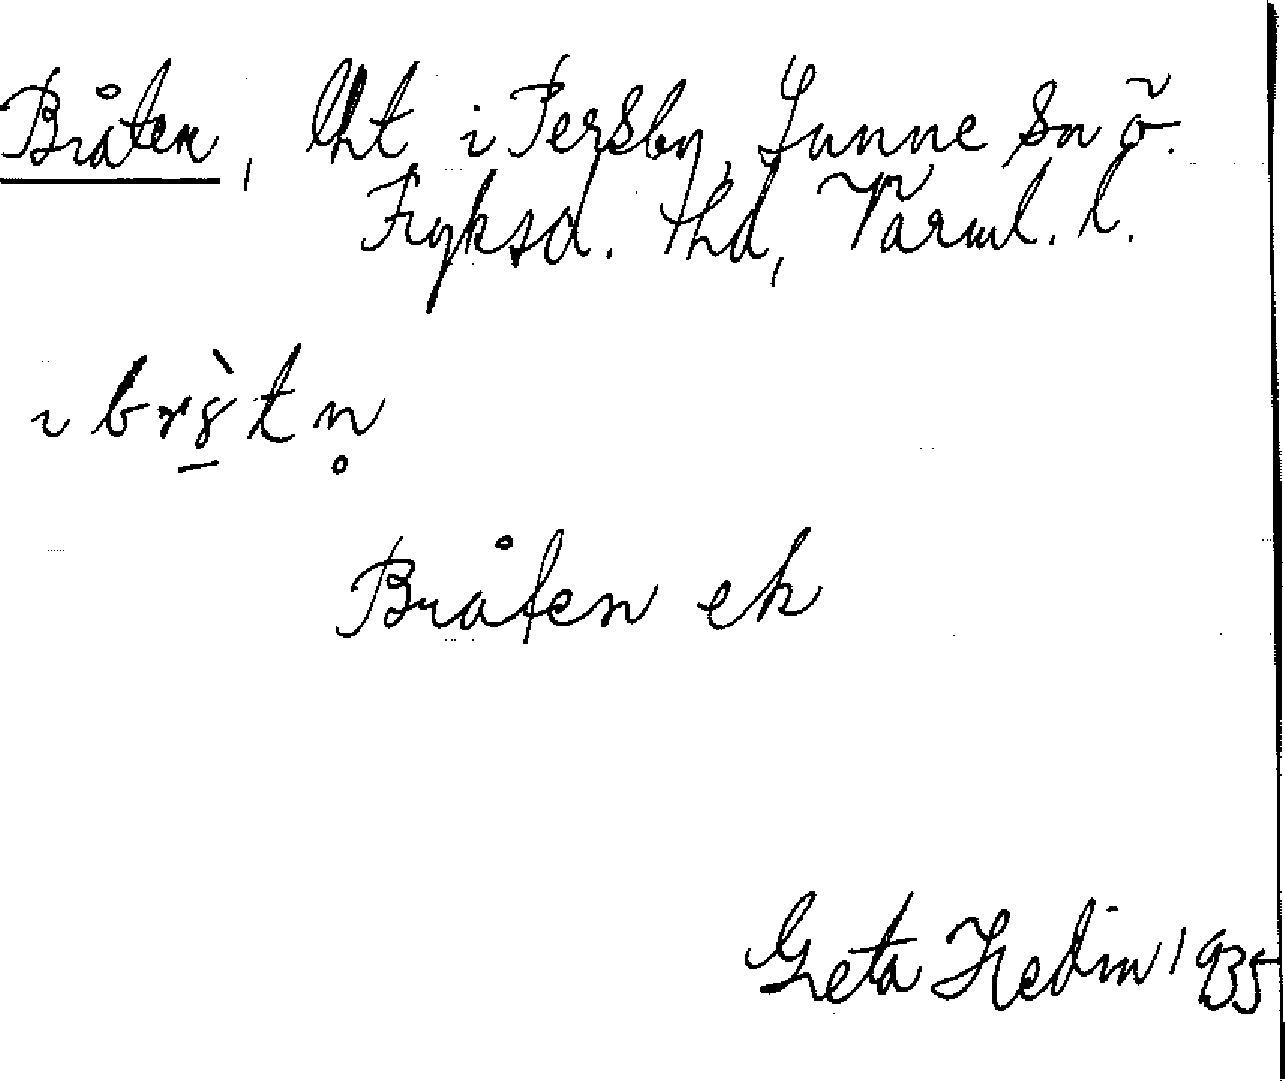 Bråten, lht i Persby, Sunne sn ö.
Fryksd. hd, Värml. l.
i br t n̥
Bråten ek
Greta Hedin 1935